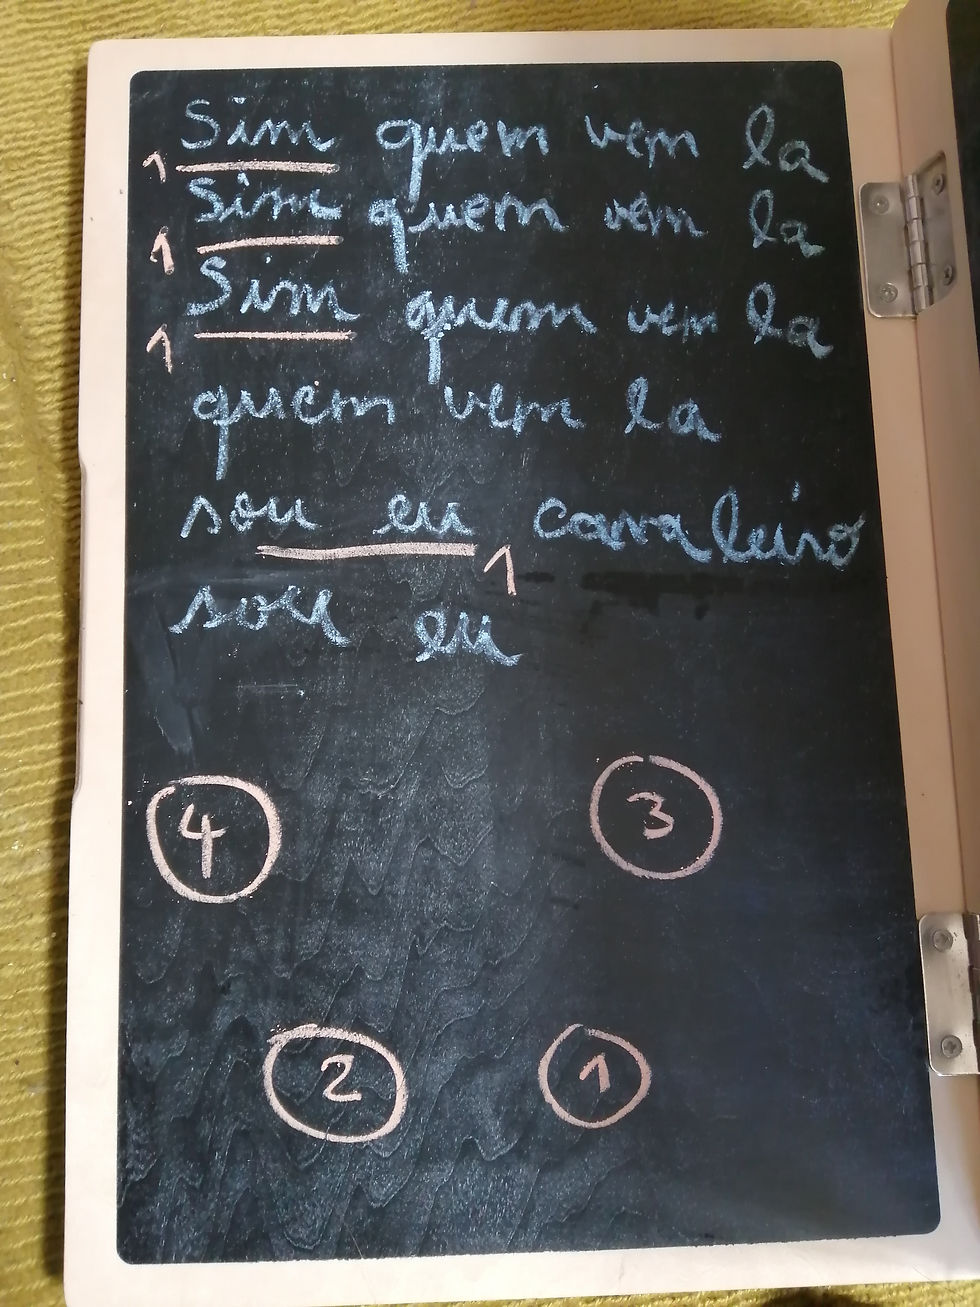 Sim quem vem la
1
Sim quem vem la
1
Sim quem vem la
1
quem vem la
sou eu cavaleiro
1
sou eu
4 3
2 1